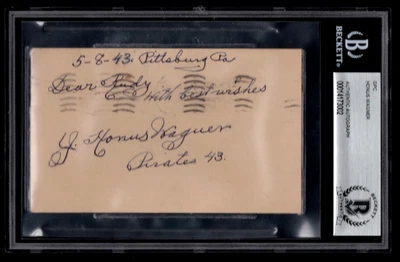 5-8-43. Pittsburg Pa
Dear Rudy
with best wishes
J. Honus Wagner
Pirates 43.
BECKETT
GPC
HONUS WAGNER
AUTHENTIC AUTOGRAPH
BECKETT